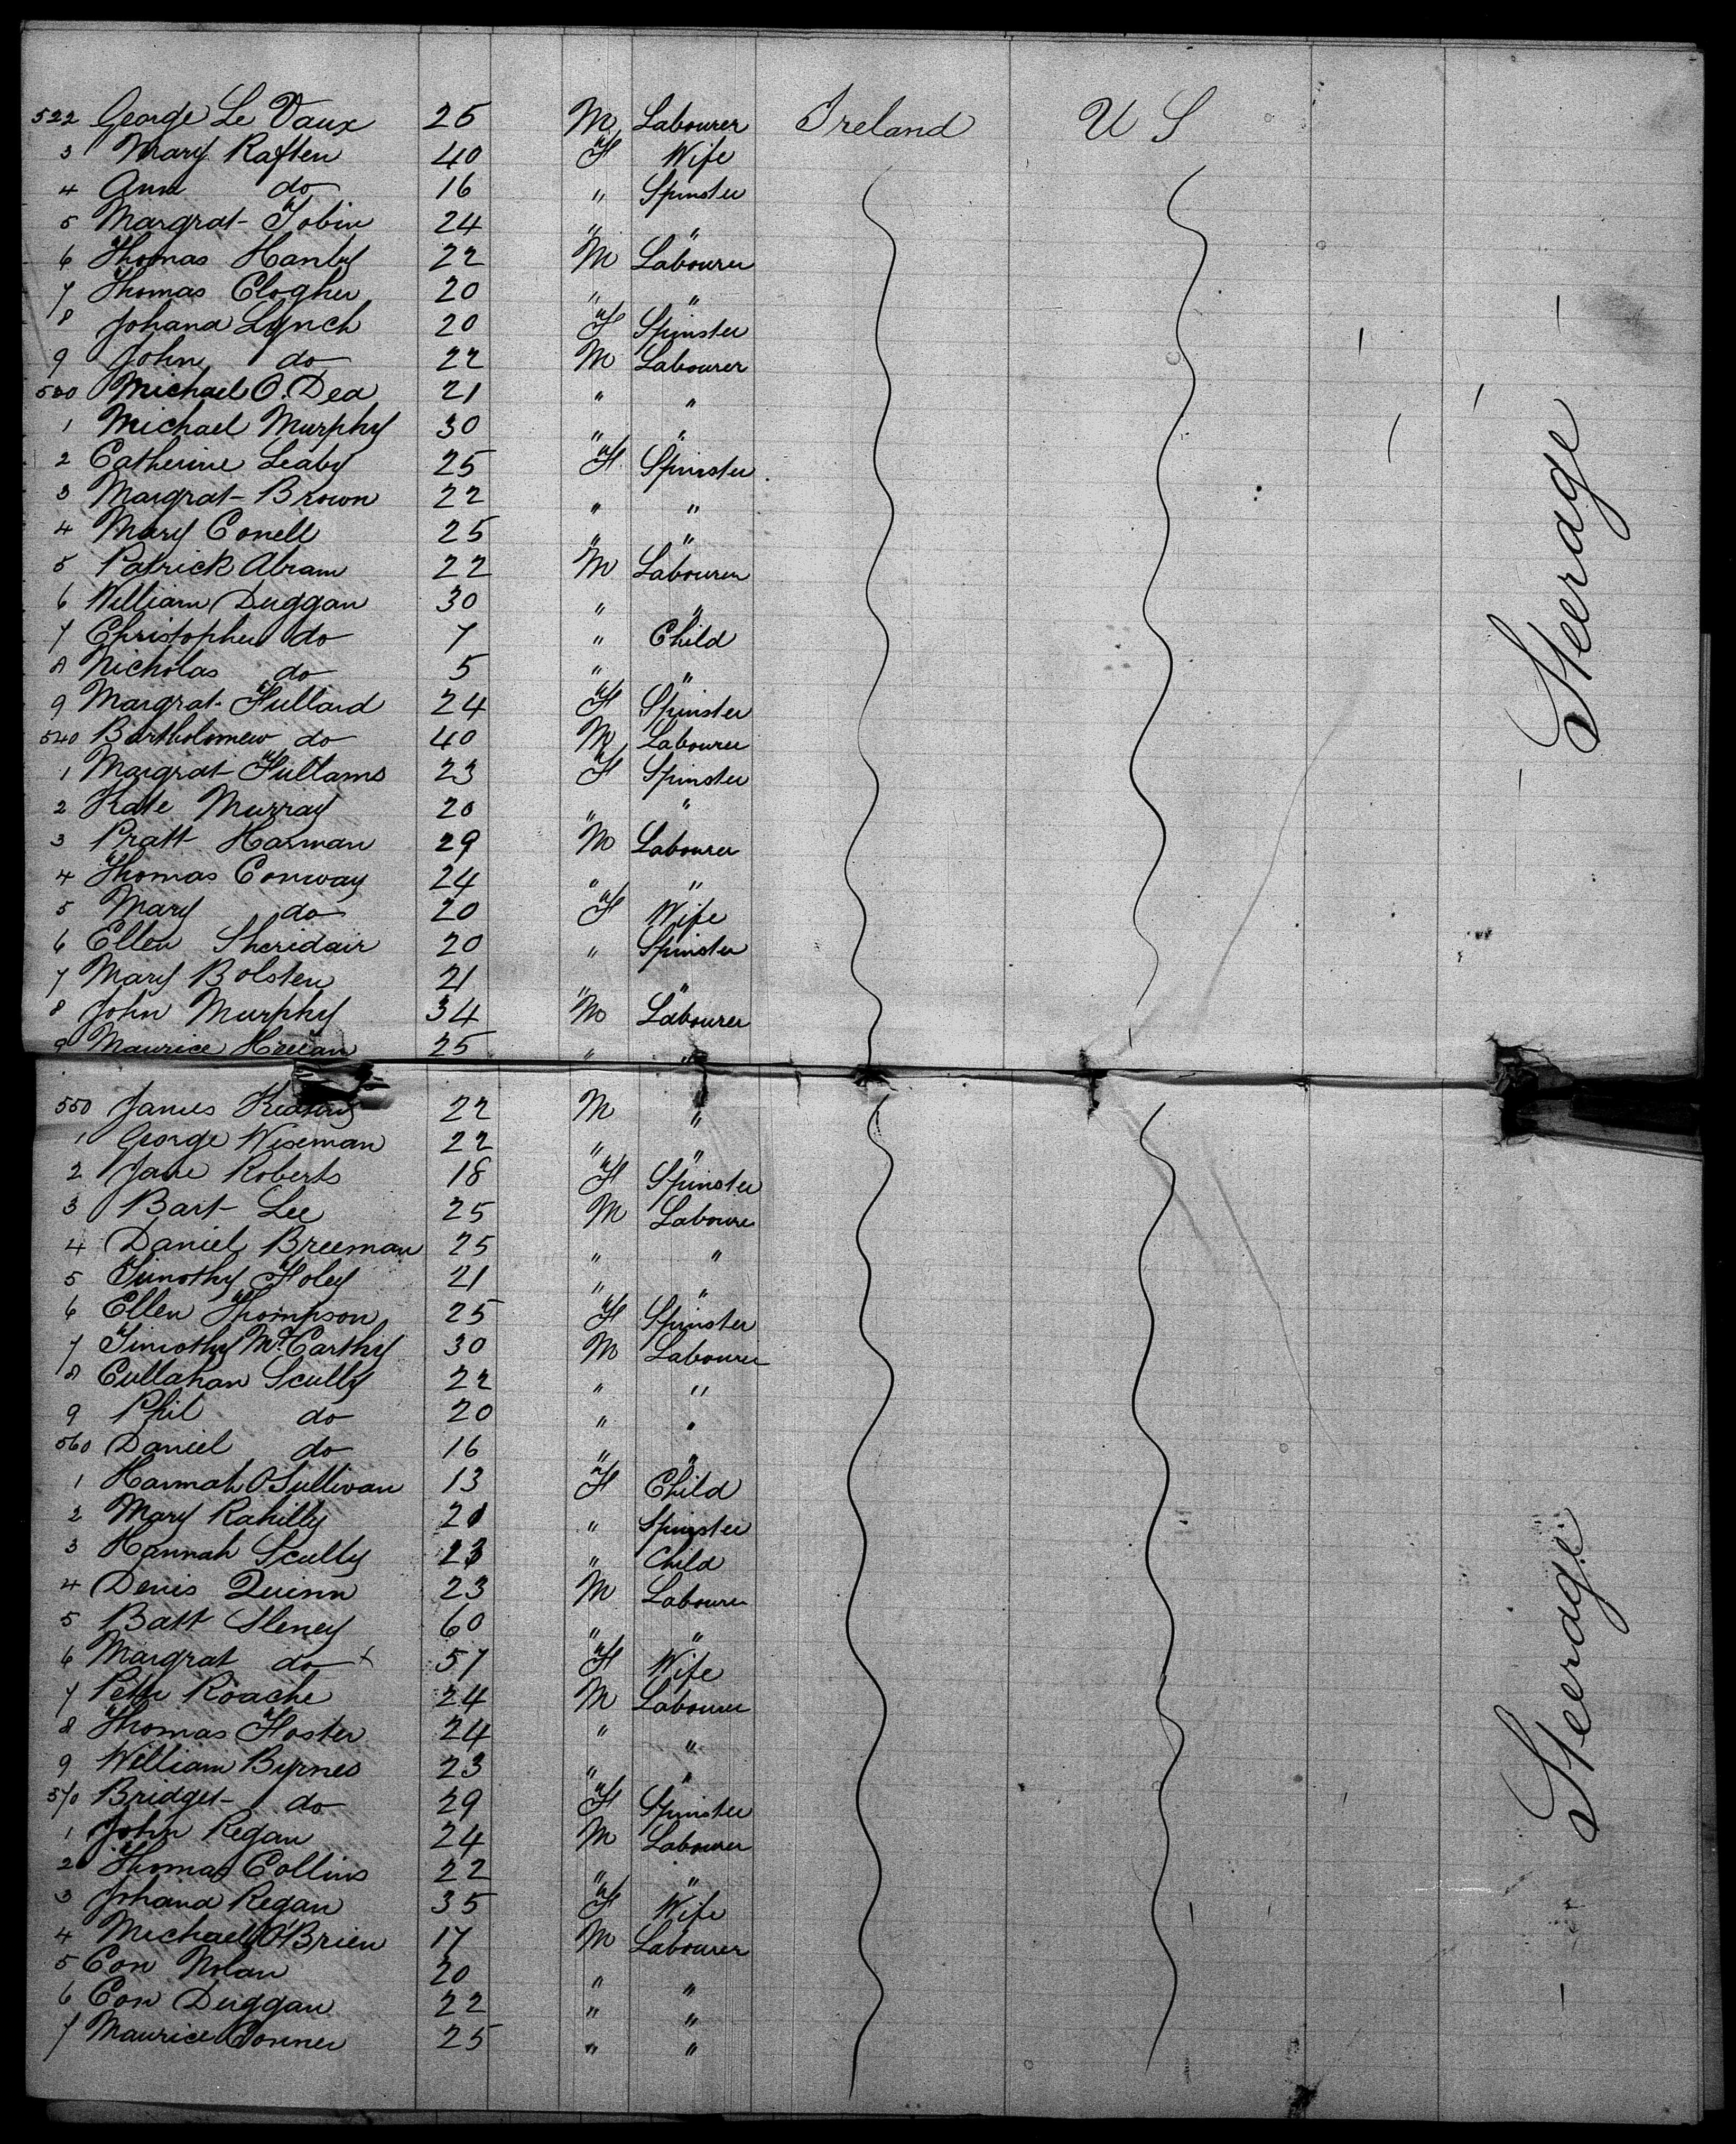 522 George Le Vaux 25 M Labourer Ireland U S
3 Mary Raften 40 F Wife
4 Ann do 16 " Spinster
5 Margrat Tobin 24 " "
6 Thomas Hanby 22 M Labourer
7 Thomas Clogher 20 " "
8 Johana Lynch 20 F Spinster
9 John do 22 M Labourer
530 Michael O. Dea 21 " "
1 Michael Murphy 30 " "
2 Catherine Leahy 25 F Spinster
3 Margrat Brown 22 " "
4 Mary Conell 25 " "
5 Patrick Abram 22 M Labourer
6 William Duggan 30 " "
7 Christopher do 7 " Child
8 Nicholas do 5 " "
9 Margrat Fullard 24 F Spinster
540 Bartholomew do 40 M Labourer
1 Margrat Fullams 23 F Spinster
2 Kate Murray 20 " "
3 Pratt Harman 29 M Labourer
4 Thomas Conway 24 " "
5 Mary do 20 F Wife
6 Ellen Sheridair 20 " Spinster
7 Mary Bolsten 21 " "
8 John Murphy 34 M Labourer
9 Maurice 25 " "
Steerage
550 James Keating 22 M "
1 George Wiseman 22 " "
2 Jane Roberts 18 F Spinster
3 Bart Lee 25 M Labourer
4 Daniel Breeman 25 " "
5 Timothy Foley 21 " "
6 Ellen Thompson 25 F Spinster
7 Timothy McCarthy 30 M Labourer
8 Cullahan Scully 22 " "
9 Phil do 20 " "
560 Daniel do 16 " "
1 Hannah O Sullivan 13 F Child
2 Mary Rahilly 21 " Spinster
3 Hannah Scully 13 " Child
4 Denis Quinn 23 M Labourer
5 Batt Sleney 60 " "
6 Margrat do x 57 F Wife
7 Peter Roache 24 M Labourer
8 Thomas Foster 24 " "
9 William Byrnes 23 " "
570 Bridget do 29 F Spinster
1 John Regan 24 M Labourer
2 Thomas Collins 22 " "
3 Johana Regan 35 F Wife
4 Michael O'Brien 17 M Labourer
5 Con Nolan 20 " "
6 Con Duggan 22 " "
7 Maurice Conner 25 " "
Steerage